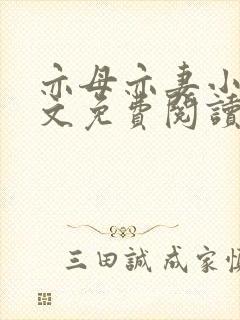 亦母亦妻小
文免費閱讀
三田誠 成家慎